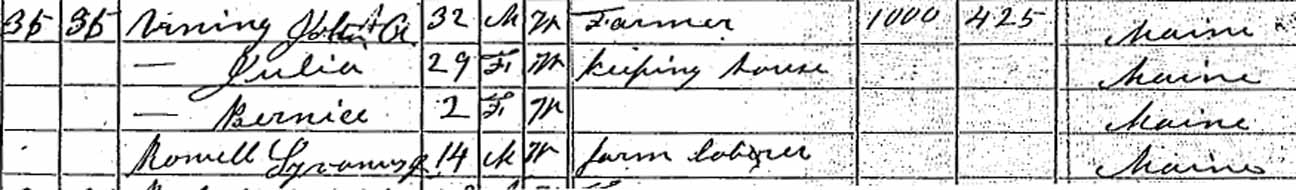 35 35 Vining John A 32 M W Farmer 1000 425 Maine
— Julia 29 F W Keeping house Maine
— Bernice 2 F W Maine
Rowell 14 M W farm laborer Maine